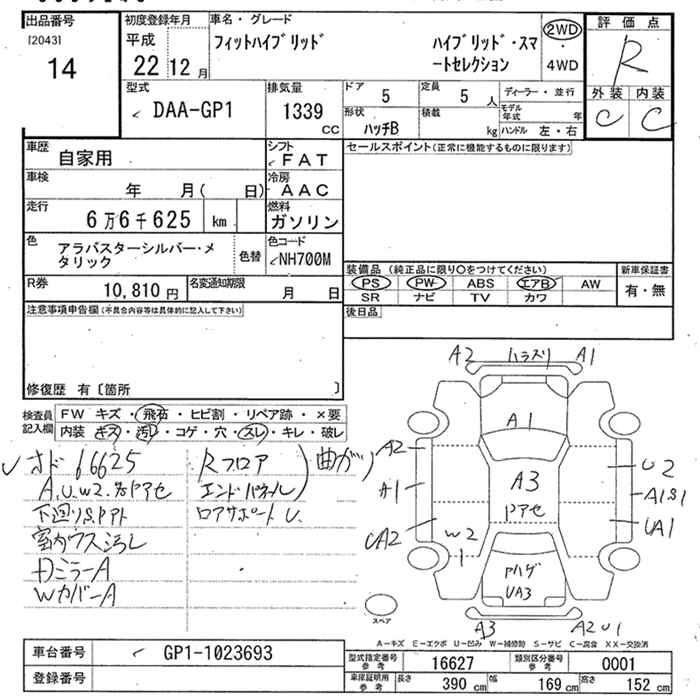 出品番号
[2043]
14
初度登録年月
平成
22 12 月
車名・グレード
フィットハイブリッド
ハイブリッド・スマ
ートセレクション
2WD
・
4WD
評価点
R
外装 内装
C C
型式
DAA-GP1
排気量
1339
CC
ドア
5
定員
5 人
形状
ハッチB
積載
kg
ディーラー・並行
モデル
年式
年
ハンドル 左・右
車歴
自家用
シフト
FAT
車検
年 月( 日)
冷房
AAC
走行
6万6千625 km
燃料
ガソリン
色
アラバスターシルバー・メ
タリック
色替
色コード
NH700M
R券
10,810 円
名変通知期限
月 日
セールスポイント(正常に機能するものに限ります)
装備品 (純正品に限り○をつけてください)
PS PW ABS エアB AW
SR ナビ TV カワ
新車保証書
有・無
後日品
注意事項申告欄(不具合内容等は具体的に記入して下さい)
修復歴 有〔箇所 〕
検査員
記入欄
FW キズ・飛石・ヒビ割・リペア跡・×要
内装 キズ・汚レ・コゲ・穴・スレ・キレ・破レ
66625
Rフロア
エンドパネル
曲がり
A.U.W2.
ロアサポート U.
室内ウス汚レ
DミラーA
WカバーA
A2 ハラスリ A1
A1
A2
A1
UA2
W2
1
A3
ドアセ
U2
A1S1
UA1
アハゲ
UA3
A3
A2U1
スペア
A-キズ E-エクボ U-凹み W-補修跡 S-サビ C-腐食 XX-交換済
車台番号
GP1-1023693
登録番号
型式指定番号
参考
16627
類別区分番号
参考
0001
車庫証明用
参考
長さ
390 cm
幅
169 cm
高さ
152 cm